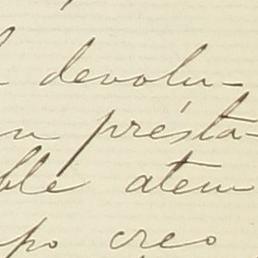 devolu-
n présta-
ble aten
po creo